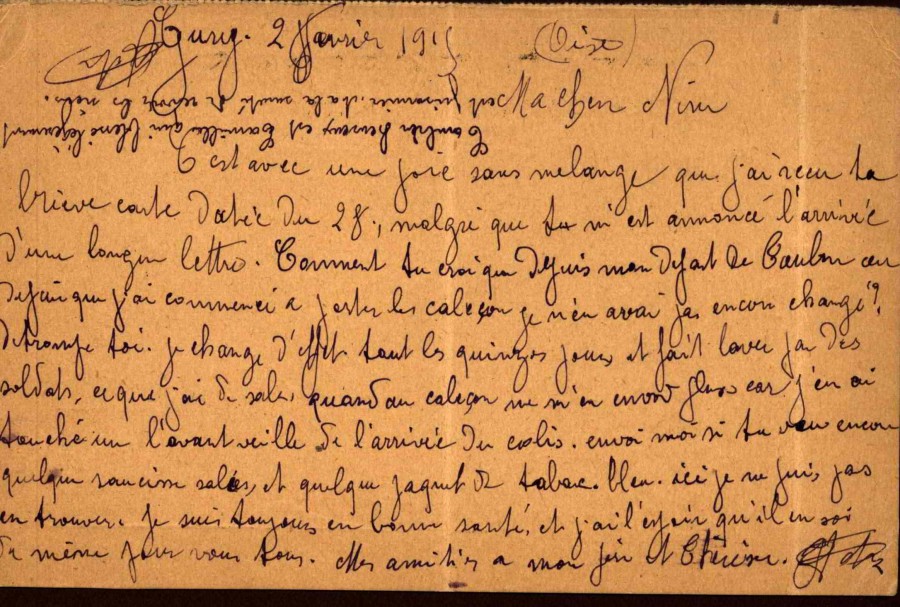 Gury. 2 Janvier 1915 (Oise)
Ma cher Nini
C est avec une joie sans melange que j'ai recu ta
brieve carte datée du 28, malgré que tu m'est annoncé l'arrivée
d'une longue lettre. Comment tu croi que depuis mon depart de Toulon ou
depuis que j'ai commencé a porter les caleçon je n'en avai pas encore changé?
detrompe toi. je change d'effet tout les quinzes jours et fait laver par des
soldats, ce que j'ai de sale, quand au caleçon ne m'en envoi plus car j'en ai
touché un l'avant veille de l'arrivée du colis. envoi moi si tu veu encore
quelque saucisse salés, et quelque paquet de tabac. bleu. ici je ne puis pas
en trouver. Je suis toujours en bonne santé, et j'ai l'espoir qu'il en soi
de même pour vous tous. Mes amitiés a mon père et Thérèse.
heureux est Camille qui blessé légèrement
est prisonnier, et a la santé de revoir les